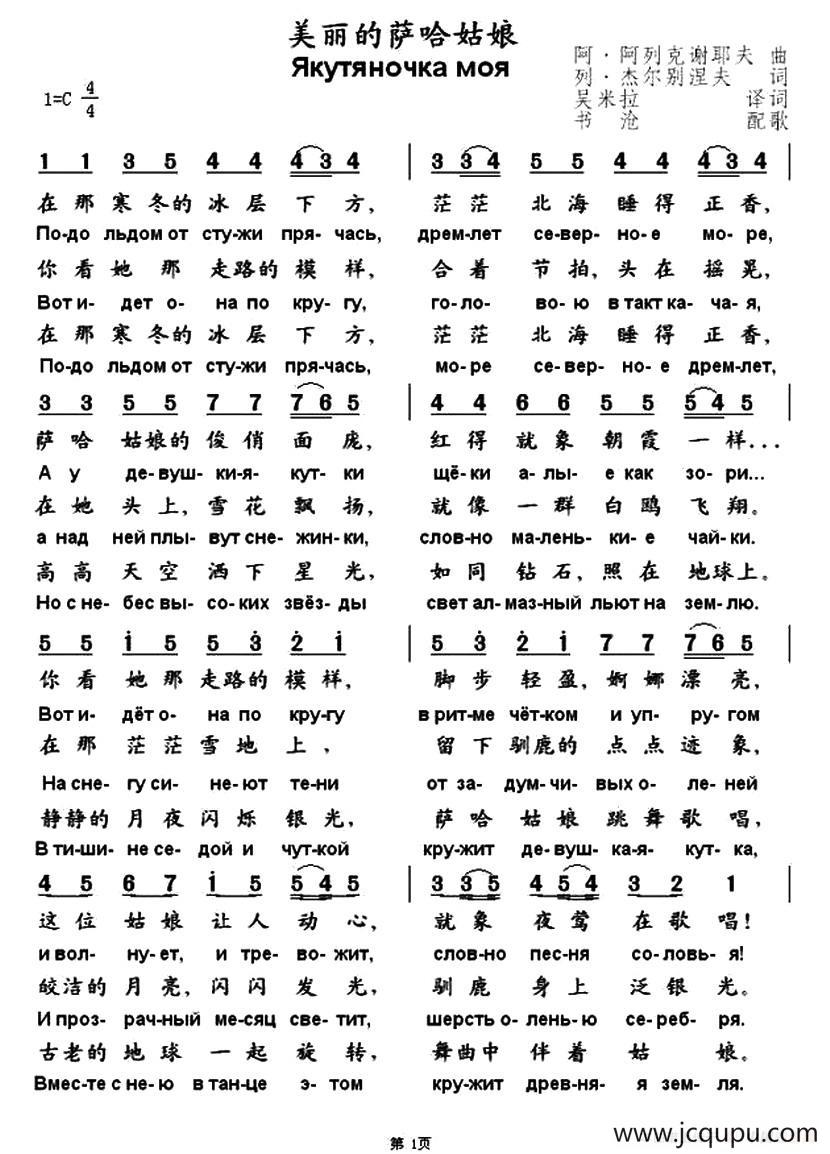 美丽的萨哈姑娘
Якутяночка моя
阿·阿列克谢耶夫 曲
列·杰尔别涅夫 词
吴米拉 译词
书沧 配歌
1=C 4/4
1 1 3 5 4 4 4 3 4 | 3 3 4 5 5 4 4 4 3 4 |
在那寒冬的冰层下方, 茫茫北海睡得正香,
По-до льдом от сту-жи пря-чась, дрем-лет се-вер-но-е мо-ре,
你看她那走路的模样, 合着节拍,头在摇晃,
Вот и-дет о-на по кру-гу, го-ло-вою в такт ка-ча-я,
在那寒冬的冰层下方, 茫茫北海睡得正香,
По-до льдом от сту-жи пря-чась, мо-ре се-вер-но-е дрем-лет,
3 3 5 5 7 7 7 6 5 | 4 4 6 6 5 5 5 4 5 |
萨哈姑娘的俊俏面庞, 红得就象朝霞一样...
А у де-вуш-ки-я-кут-ки щё-ки а-лы-е как зо-ри...
在她头上,雪花飘扬, 就像一群白鸥飞翔。
а над ней плы-вут сне-жин-ки, слов-но ма-лень-ки-е чай-ки.
高高天空洒下星光, 如同钻石,照在地球上。
Но с не-бес вы-со-ких звёз-ды свет ал-маз-ный льют на зем-лю.
5 5 i 5 5 3̇ 2̇ i | 5 3̇ 2̇ i 7 7 7 6 5 |
你看她那走路的模样, 脚步轻盈,婀娜漂亮,
Вот и-дёт о-на по кру-гу в рит-ме чёт-ком и уп-ру-гом
在那茫茫雪地上, 留下驯鹿的点点迹象,
На сне-гу си-не-ют те-ни от за-дум-чи-вых о-ле-ней
静静的月夜闪烁银光, 萨哈姑娘跳舞歌唱,
В ти-ши-не се-дой и чут-кой кру-жит де-вуш-ка-я-кут-ка,
4 5 6 7 i 5 5 4 5 | 3 3 5 4 5 4 3 2 1 |
这位姑娘让人动心, 就象夜莺在歌唱!
и вол-ну-ет, и тре-во-жит, слов-но пес-ня со-ловь-я!
皎洁的月亮,闪闪发光, 驯鹿身上泛银光。
И проз-рач-ный ме-сяц све-тит, шерсть о-лень-ю се-реб-ря.
古老的地球一起旋转, 舞曲中伴着姑娘。
Вмес-те с не-ю в тан-це э-том кру-жит древ-ня-я зем-ля.
第 1页
www.jcqupu.com